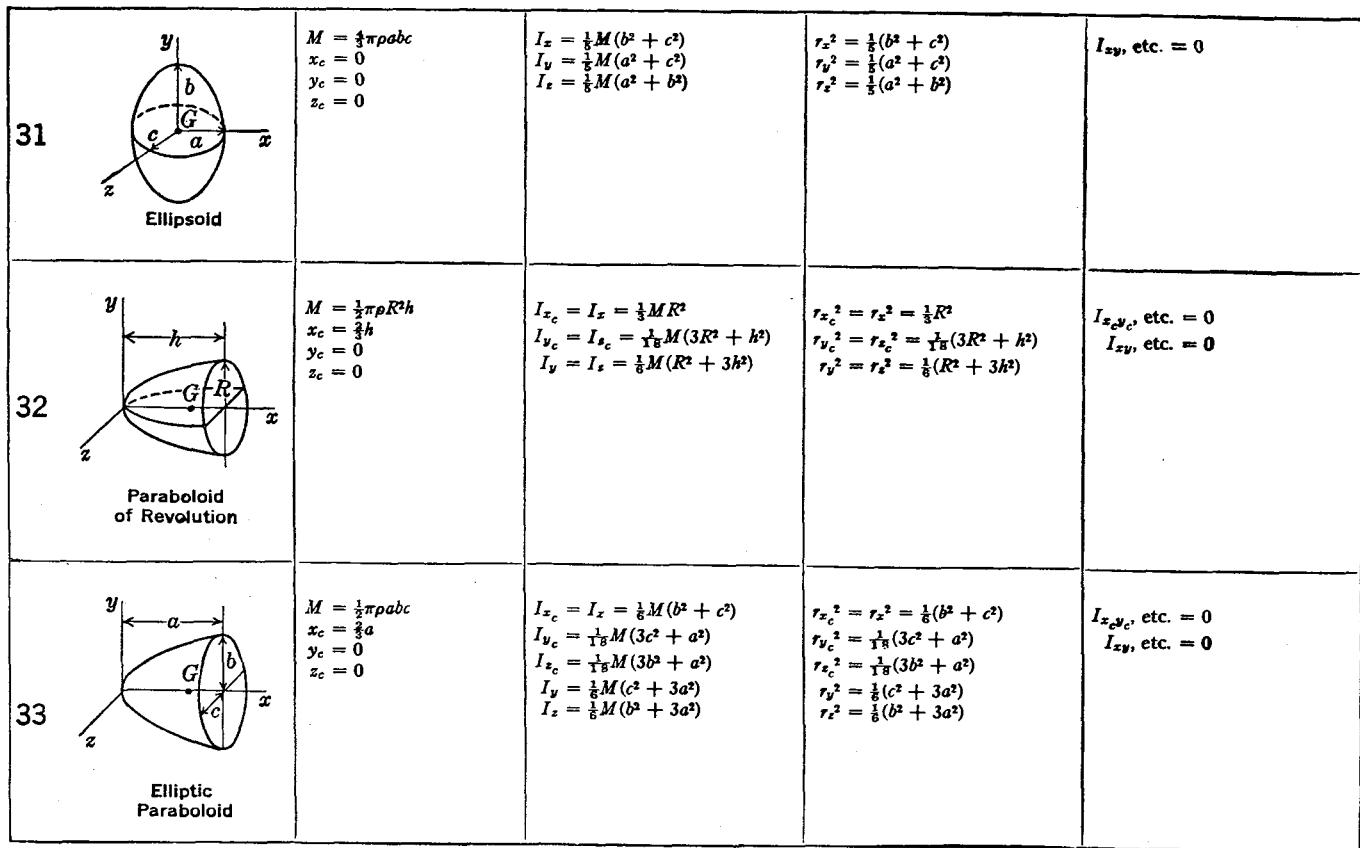 31
y
b
G
c
a
x
z
Ellipsoid
M = 4/3 πρabc
x_c = 0
y_c = 0
z_c = 0
I_x = 1/5 M(b² + c²)
I_y = 1/5 M(a² + c²)
I_z = 1/5 M(a² + b²)
r_x² = 1/5 (b² + c²)
r_y² = 1/5 (a² + c²)
r_z² = 1/5 (a² + b²)
I_xy, etc. = 0
32
y
h
R
G
x
z
Paraboloid
of Revolution
M = 1/2 πρR²h
x_c = 2/3 h
y_c = 0
z_c = 0
I_x_c = I_x = 1/3 MR²
I_y_c = I_z_c = 1/18 M(3R² + h²)
I_y = I_z = 1/6 M(R² + 3h²)
r_x_c² = r_x² = 1/3 R²
r_y_c² = r_z_c² = 1/18 (3R² + h²)
r_y² = r_z² = 1/6 (R² + 3h²)
I_x_c y_c, etc. = 0
I_xy, etc. = 0
33
y
a
b
G
x
c
z
Elliptic
Paraboloid
M = 1/2 πρabc
x_c = 2/3 a
y_c = 0
z_c = 0
I_x_c = I_x = 1/6 M(b² + c²)
I_y_c = 1/18 M(3c² + a²)
I_z_c = 1/18 M(3b² + a²)
I_y = 1/6 M(c² + 3a²)
I_z = 1/6 M(b² + 3a²)
r_x_c² = r_x² = 1/6 (b² + c²)
r_y_c² = 1/18 (3c² + a²)
r_z_c² = 1/18 (3b² + a²)
r_y² = 1/6 (c² + 3a²)
r_z² = 1/6 (b² + 3a²)
I_x_c y_c, etc. = 0
I_xy, etc. = 0